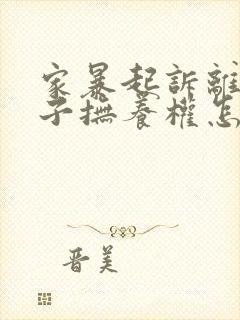 家暴起訴離
子撫養權怎
晋美